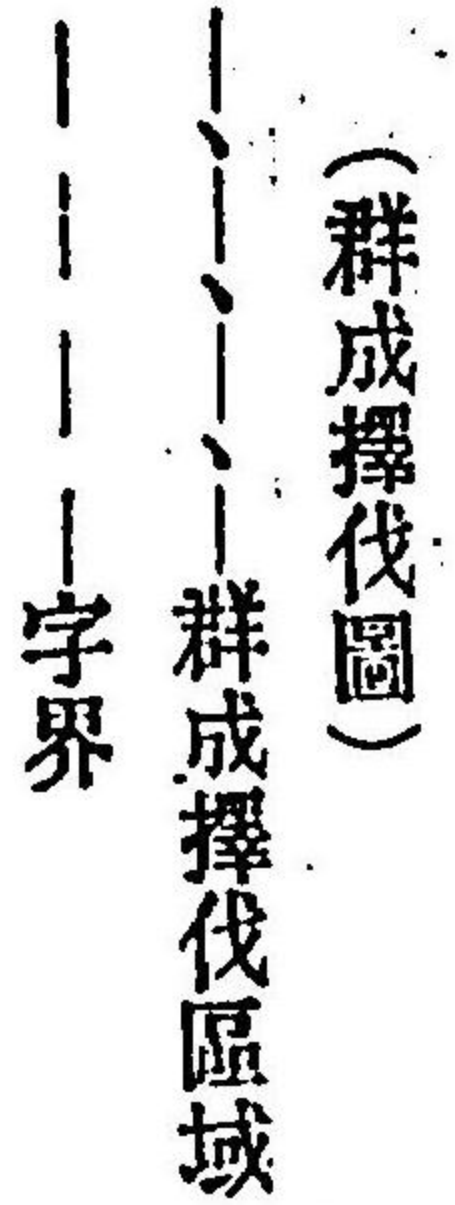 (群成擇伐圖)
群成擇伐區域
字界